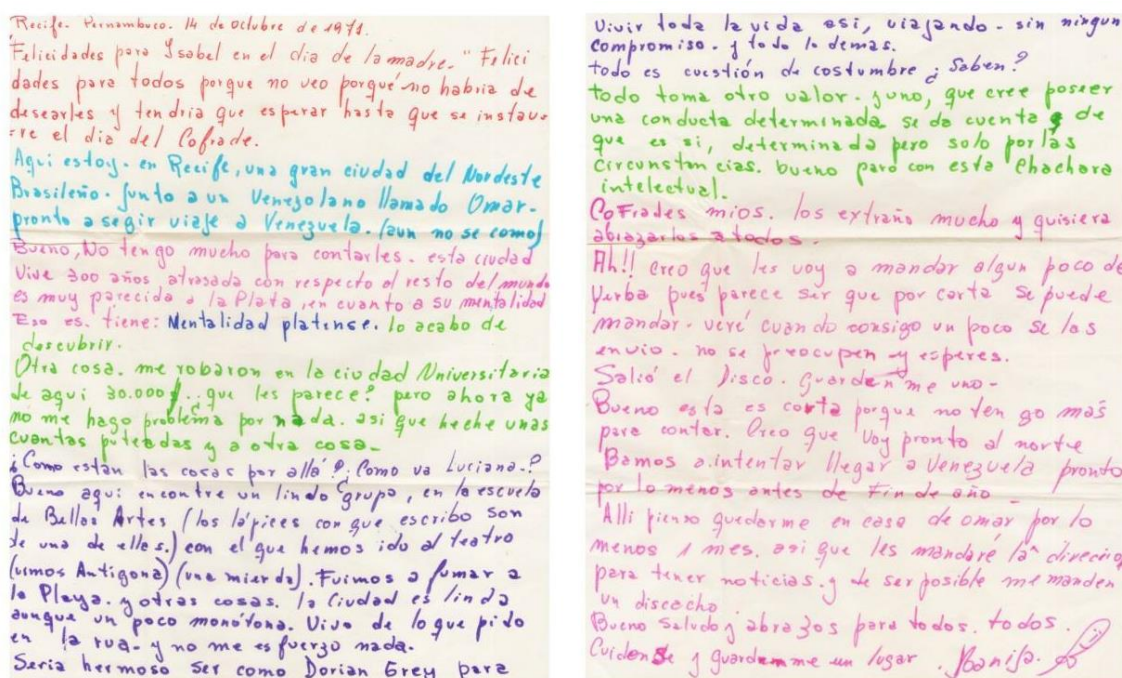 Recife. Pernambuco. 14 de octubre de 1971.
Felicidades para Ysabel en el dia de la madre." Felici
dades para todos porque no veo porqué no habria de
desearles y tendria que esperar hasta que se instau-
re el dia del Cofrade.
Aqui estoy. en Recife, una gran ciudad del Nordeste
Brasileño. junto a un Venezolano llamado Omar-
pronto a segir viaje a Venezuela. (aun no se como)
Bueno, No tengo mucho para contarles. esta ciudad
Vive 300 años atrasada con respecto al resto del mundo
es muy parecida a la Plata, en cuanto a su mentalidad
Eso es. tiene: Mentalidad platense. lo acabo de
descubrir.
Otra cosa. me robaron en la ciudad Universitaria
de aqui 30.000 .. que les parece? pero ahora ya
no me hago problema por nada. asi que heche unas
cuantas puteadas y a otra cosa-
¿Como estan las cosas por allá?¿Como va Luciana-?
Bueno aqui encontre un lindo grupo, en la escuela
de Bellas Artes (los lápices con que escribo son
de una de elles.) con el que hemos ido al teatro
(vimos Antigona) (una mierda). Fuimos a fumar a
la Playa. y otras cosas. la Ciudad es linda
aunque un poco monótona. Vivo de lo que pido
en la rua. y no me esfuerzo nada.
Seria hermoso ser como Dorian Grey para
Vivir toda la vida asi, viajando - sin ningun
compromiso. y todo lo demas.
todo es cuestión de costumbre ¿Saben?
todo toma otro valor. y uno, que cree poseer
una conducta determinada se da cuenta de
que es si, determinada pero solo por las
circunstancias. bueno paro con esta Chachara
intelectual.
CoFrades mios. los extraño mucho y quisiera
abrazarlos a todos.
Ah!! Creo que les voy a mandar algun poco de
Yerba pues parece ser que por carta se puede
mandar. veré cuando consigo un poco se las
envio. no se preocupen y esperes.
Salió el Disco. Guarden me uno-
Bueno esta es corta porque no tengo mas
para contar. Creo que Voy pronto al norte
Bamos a intentar llegar a Venezuela pronto
por lo menos antes de Fin de año
Alli pienso quedarme en casa de omar por lo
menos 1 mes. asi que les mandaré la direcion
para tener noticias. y de ser posible me manden
un discocho.
Bueno Saludo y abrazos para todos. todos.
Cuidense y guardenme un lugar.